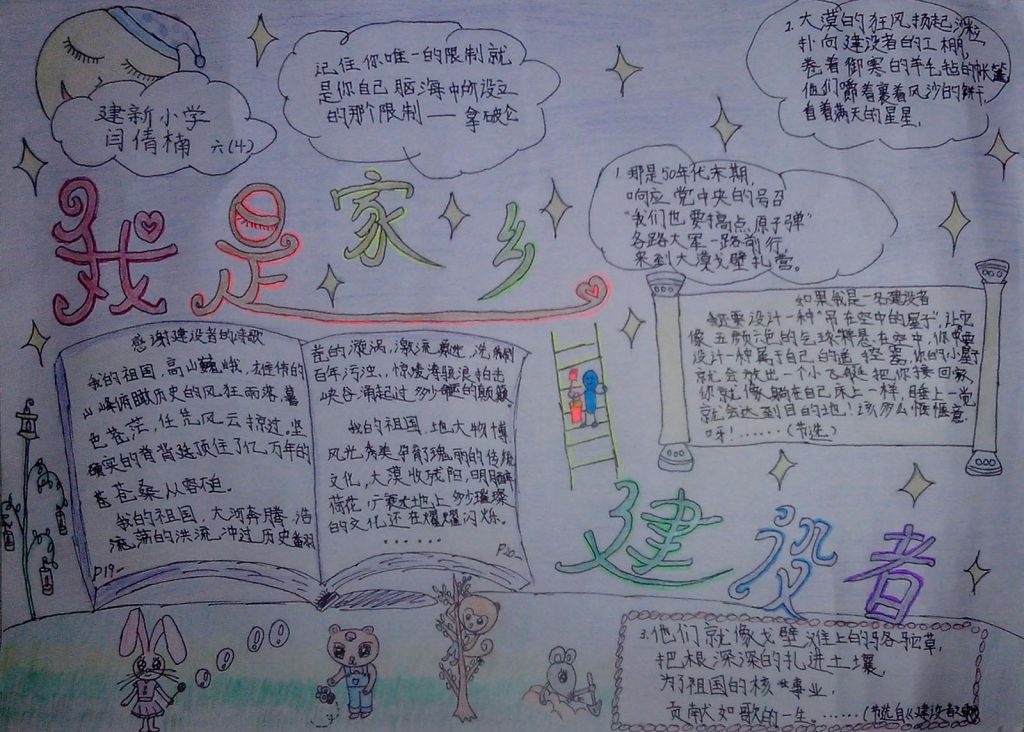 建新小学
闫倩楠 六(4)
记住你唯一的限制就
是你自己脑海中所设立
的那个限制——拿破仑
2、大漠的狂风扬起沙粒
扑向建设者的工棚,
卷着御寒的羊毛毡的帐篷
他们嚼着裹着风沙的饼干,
看着满天的星星,
1、那是50年代末期,
响应党中央的号召
"我们也要搞点原子弹"
各路大军一路前行,
来到大漠戈壁扎营。
我是家乡
建设者
感谢建设者的诗歌
我的祖国,高山巍峨,去雄伟的
山峰俯瞰历史的风狂雨落,暮
色苍茫,任凭风云掠过。坚
实的脊背顶住了亿万年的
苍桑从容自。
我的祖国,大河奔腾,浩
荡的洪流,冲过历史翻
P19-
卷的漩涡,激流,洗刷
百年污浊,惊涛骇浪拍击
峡谷涌起过多少的颠簸。
我的祖国,地大物博
风光秀美孕育了瑰丽的传统
文化,大漠收残阳,明月醉
荷花,广袤大地上多少璀璨
的文化还在熠熠闪烁。
......
P20-
如果我是一名建设者
我要设计一种"吊在空中的屋子",让它
像五颜六色的气球飘悬在空中,你
设计一种属于自己的遥控窝,你的小屋子
就会放出一个小飞艇把你接回家,
你就像躺在自己床上一样,睡上一觉
就会达到目的地!该多么惬惬意
呀!......(节选)
3、他们就像戈壁滩上的骆驼草,
把根深深的扎进土壤
为了祖国的核事业,
贡献如歌的一生。......(节选自《建设者